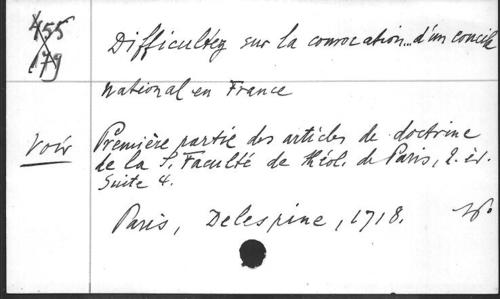 455
179
Difficultez sur la convocation... d'un concile
National en France
Voir
Première partie des articles de doctrine
de la S. Faculté de théol. de Paris, 2. éd.
Suite 4.
Paris, Delespine, 1718.